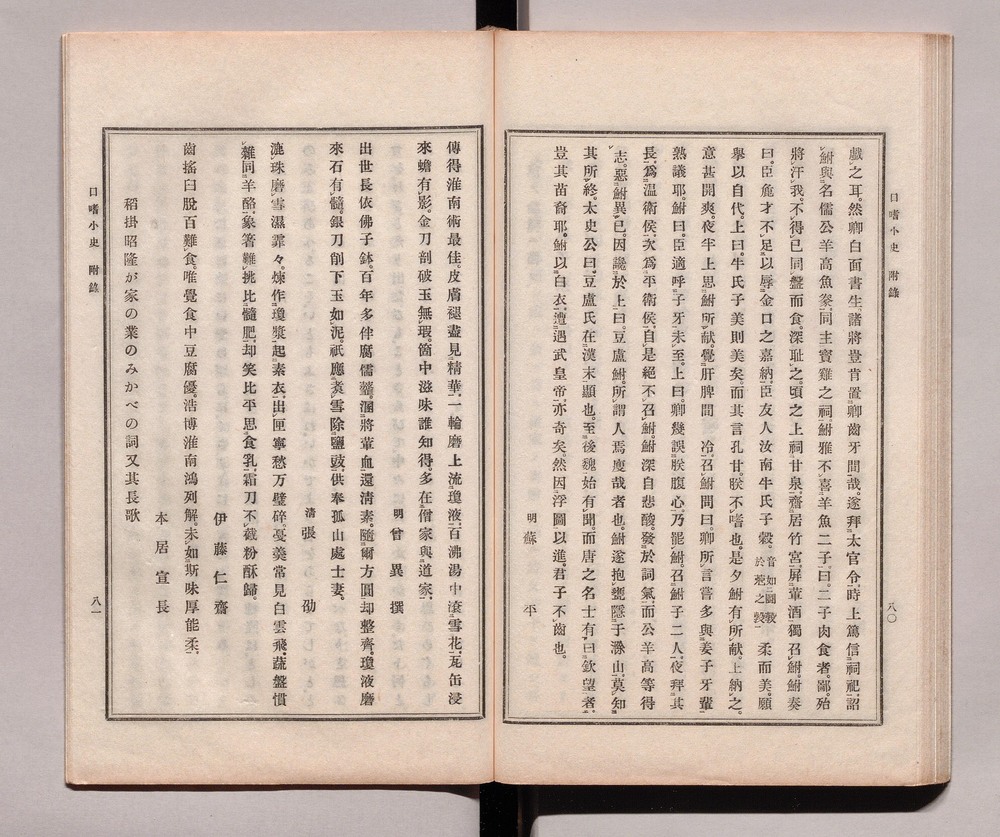 口嗜小史　附錄
八〇
戲之耳。然卿白面書生、諸將豈肯置卿齒牙間哉。遂拜太官令。時上篤信祠祀、詔
鮒與名儒公羊高魚豢、同主寳雞之祠、鮒雅不喜羊魚二子曰。二子肉食者鄙。殆
將汗我。不得已同盤而食。深耻之。頃之上祠甘泉、齋居竹宮、屏葷酒獨召鮒。鮒奏
曰。臣庖才不足以辱金口之嘉納、臣友人汝南牛氏子縠。音如鬭縠於菟之縠柔而美。願
擧以自代。上曰。牛氏子美則美矣。而其言孔甘。朕不嗜也。是夕鮒有所獻。上納之。
意甚開爽。夜半上思鮒所獻。覺肝脾間冷。召鮒問曰。卿所言嘗多與姜子牙輩
熟議耶。鮒曰。臣適呼子牙未至。上曰。卿幾誤朕腹心。乃罷鮒。召鮒子二人、夜拜其
長、爲溫衛侯、次爲平衛侯。自是絕不召鮒。鮒深自悲酸。發於詞氣而公羊高等得
志。惡鮒異己。因讒於上曰。豆盧鮒。所謂人焉廋哉者也。鮒遂抱甕隱于滁山。莫知
其所終。太史公曰。豆盧氏在漢末顯也。至後魏始有聞。而唐之名士有曰欽望者、
豈其苗裔耶。鮒以白衣、遭遇武皇帝。亦奇矣。然因浮圖以進。君子不齒也。
明　蘇　平
傳得淮南術最佳。皮膚褪盡見精華。一輪磨上流瓊液。百沸湯中滾雪花。瓦缶浸
來蟾有影。金刀剖破玉無瑕。箇中滋味誰知得。多在僧家與道家。
明　曾　異　撰
出世長依佛子鉢。百年多伴腐儒虀。溷將葷血還淸素。隨爾方圓却整齊。瓊液磨
來石有髓。銀刀削下玉如泥。祇應煑雪除鹽豉。供奉孤山處士妻。
淸　張　劭
漉珠磨雪濕霏々。煉作瓊漿起素衣。出匣寧愁方璧碎。憂羮常見白雲飛。蔬盤慣
雜同羊酪、象箸難挑比髓肥。却笑比平思食乳。霜刀不截粉酥歸。
伊　藤　仁　齋
齒搖臼脫百難食唯覺食中豆腐優。浩博淮南鴻列解。未如斯味厚能柔。
本　居　宣　長
稻掛昭隆が家の業のみかべの詞又其長歌
口嗜小史　附錄
八一